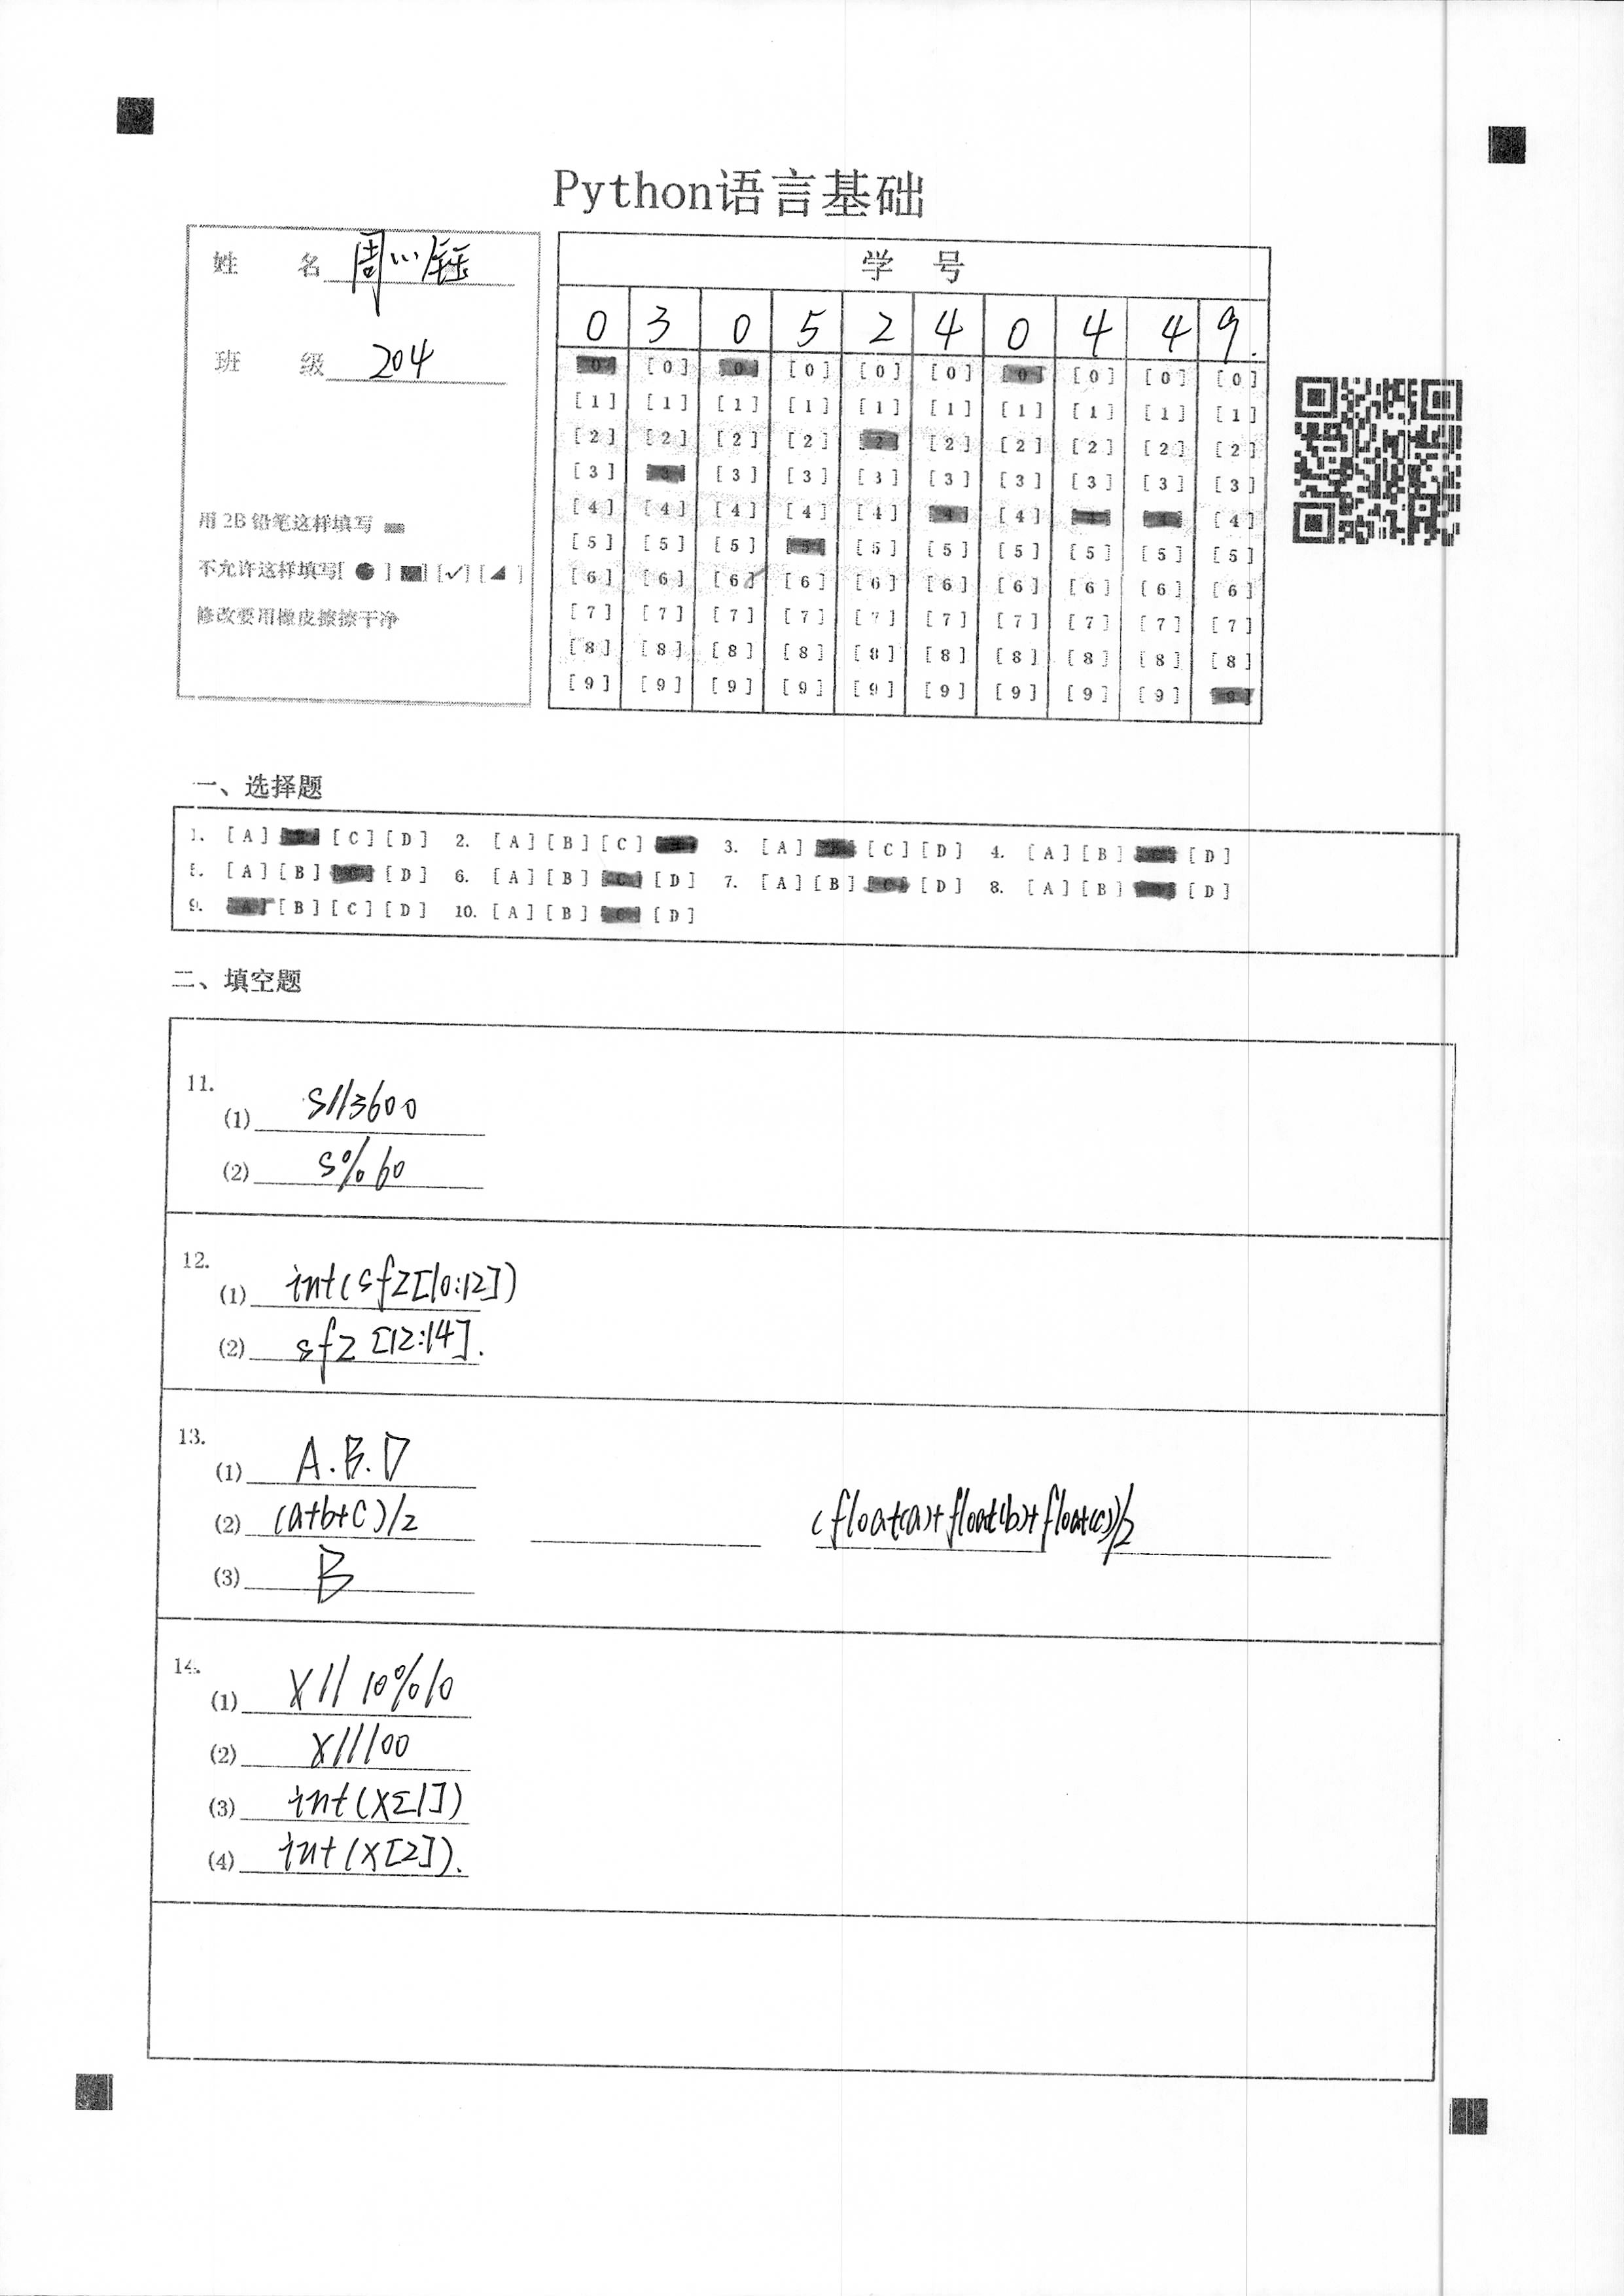 Python语言基础
姓 名 周
班 级 204
用 2B 铅笔这样填写
不允许这样填写[ ● ] [■] [✓] [◢ ]
修改要用橡皮擦擦干净
学 号
0 3 0 5 2 4 0 4 4 9.
[0] [0] [0] [0] [0] [0] [0] [0] [0] [0]
[1] [1] [1] [1] [1] [1] [1] [1] [1] [1]
[2] [2] [2] [2] [2] [2] [2] [2] [2] [2]
[3] [3] [3] [3] [3] [3] [3] [3] [3]
[4] [4] [4] [4] [4] [4] [4] [4] [4] [4]
[5] [5] [5] [5] [5] [5] [5] [5] [5] [5]
[6] [6] [6] [6] [6] [6] [6] [6] [6] [6]
[7] [7] [7] [7] [7] [7] [7] [7] [7] [7]
[8] [8] [8] [8] [8] [8] [8] [8] [8] [8]
[9] [9] [9] [9] [9] [9] [9] [9] [9] [9]
一、选择题
1. [A] [C] [D] 2. [A] [B] [C] 3. [A] [C] [D] 4. [A] [B] [D]
5. [A] [B] [D] 6. [A] [B] [C] [D] 7. [A] [B] [C] [D] 8. [A] [B] [D]
9. [A] [B] [C] [D] 10. [A] [B] [C] [D]
二、填空题
11.
(1) s//3600
(2) s%60
12.
(1) int(sfz[10:12])
(2) sfz[12:14].
13.
(1) A.B.D
(2) (a+b+c)/2 (float(a)+float(b)+float(c))/2
(3) B
14.
(1) x//10%10
(2) x//100
(3) int(x[1])
(4) int(x[2]).